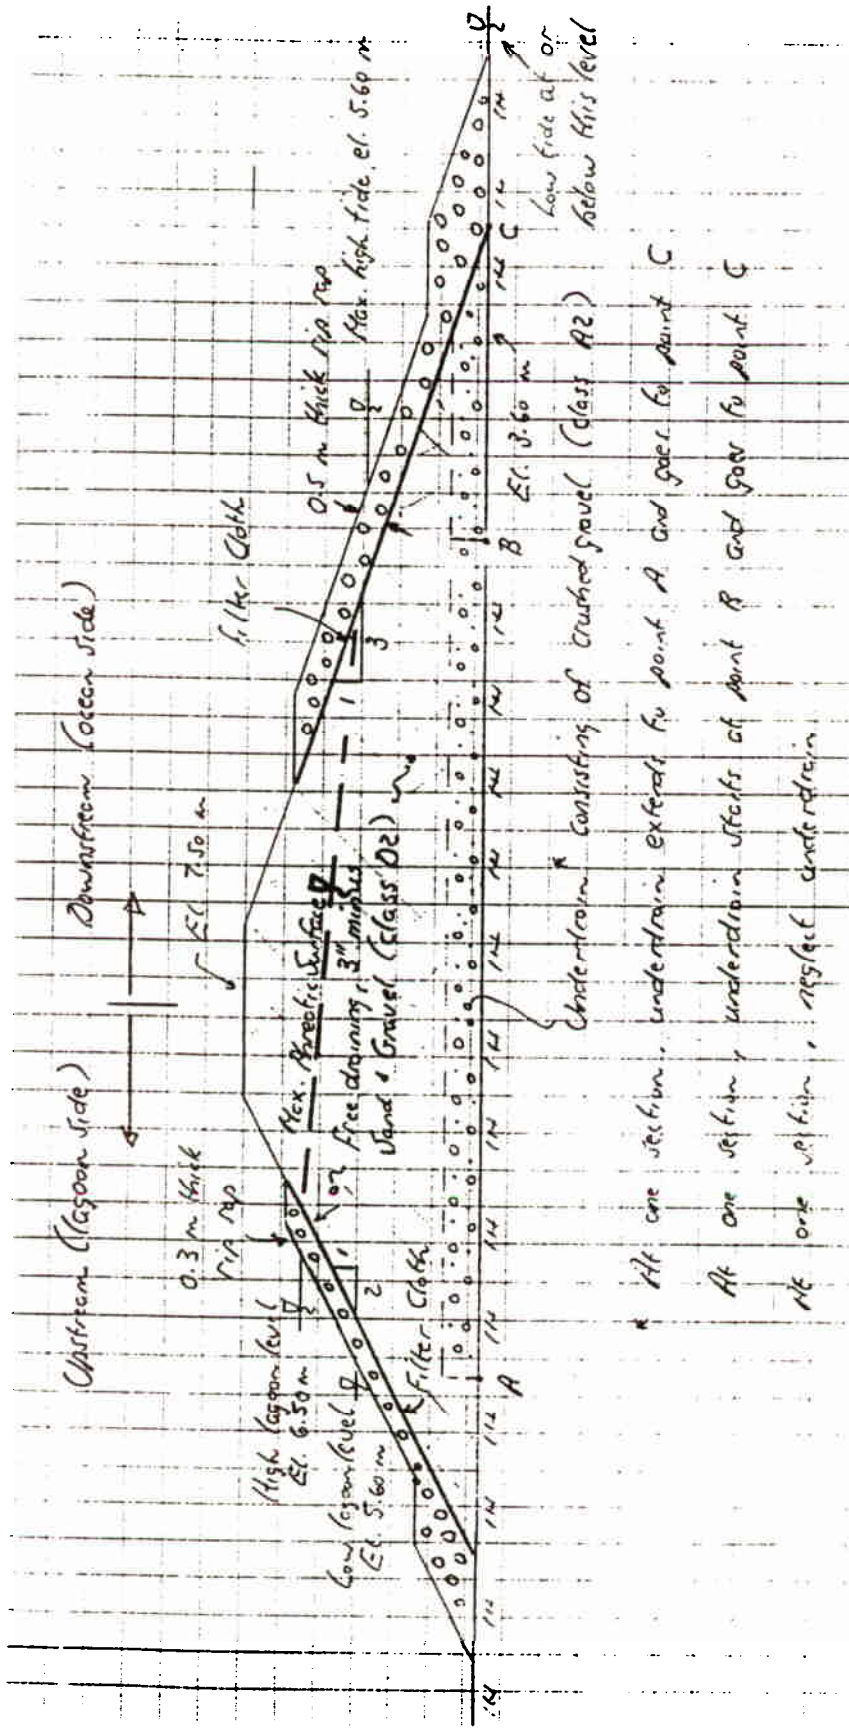 Upstream (lagoon side)
Downstream (ocean side)
El. 7.50 m
0.3 m thick
rip rap
High lagoon level
El. 6.50 m
Low lagoon level
El. 5.60 m
Filter Cloth
1
2
Max. Phreatic Surface
Free draining, 3" minus
Sand & Gravel (Class D2)
1
3
Filter Cloth
0.5 m thick rip rap
Max. high tide, el. 5.60 m
Low tide at or
below this level
A
B
C
El. 3.60 m
Underdrain consisting of crushed gravel (Class A2)
* At one section, underdrain extends to point A and goes to point C
At one section, underdrain starts at point B and goes to point C
At one section, neglect underdrain